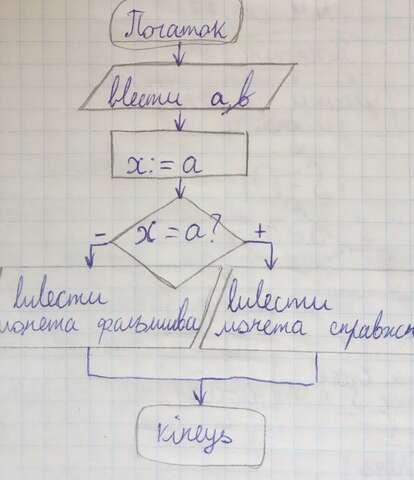 Початок
ввести а,в
х:= а
х = а?
-
+
вивести
монета фальшива
вивести
монета справжн
кінець